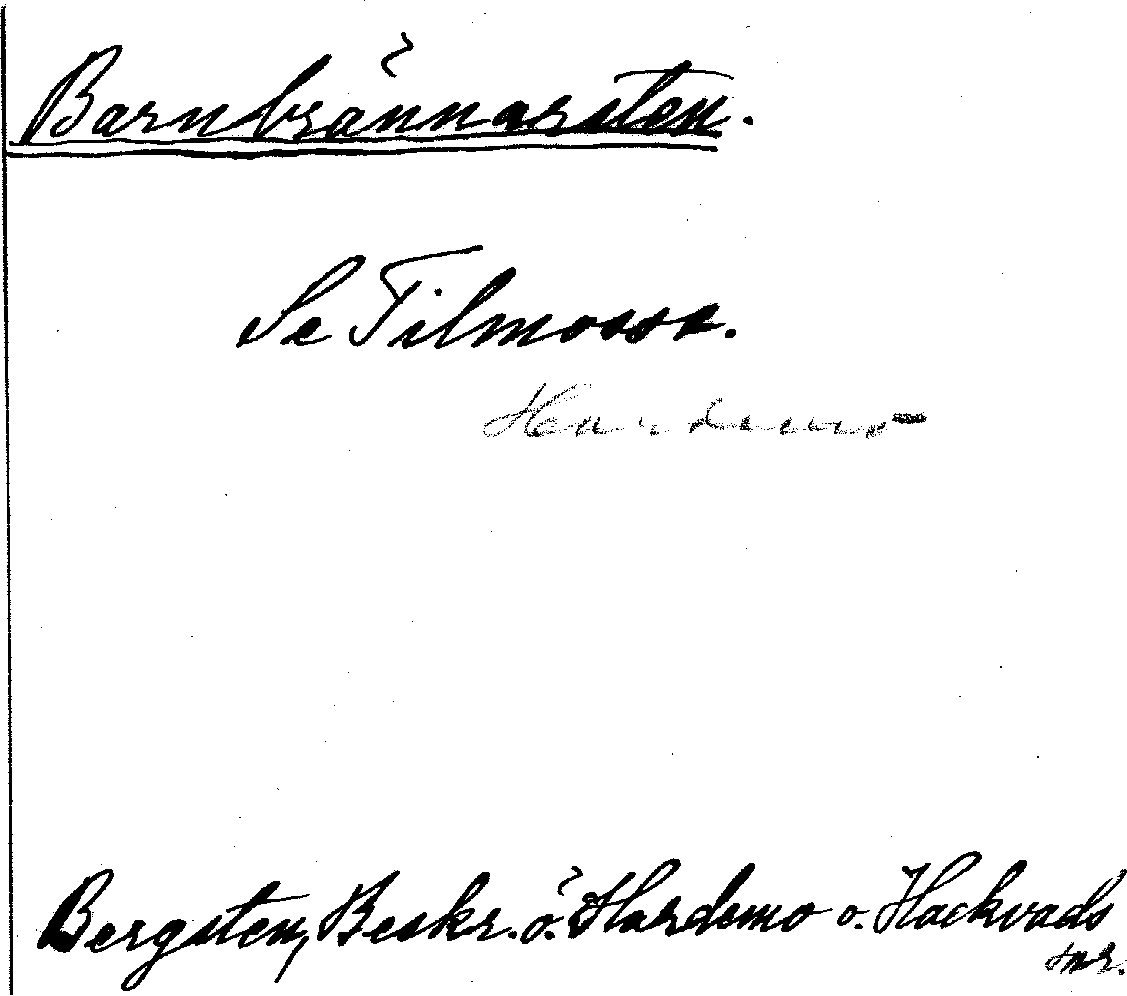 Barnbrännarsten.
Se Tilmossa.
Hardemo
Bergsten, Beskr. ö. Hardemo o. Hackvads
snr.